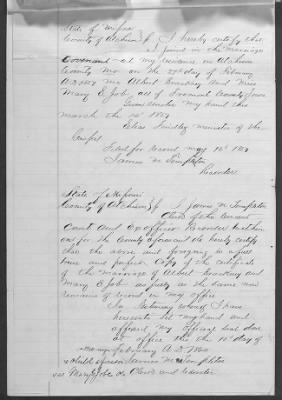 State of Missouri
County of Atchison } I hereby certify that
I joined in the marriage
Covenant at my residence in Atchison
County Mo on the 27th day of February
A.D. Mr Albert and Miss
Mary E Job, all of Fremont County Iowa
Given under my hand this
march the 1st
Elias Findley minister of the
Gospel
Filed for record may 16th
James M Templeton
Recorder
State of Missouri
County of Atchison } I James M Templeton
Clerk of the Circuit
Court and Ex officio Recorder within
and for the County aforesaid do hereby certify
that the above and foregoing is a just
true and perfect Copy of the certificate
of the marriage of Albert and
Mary E Job as fully as the same now
remains of record in my office
In testimony whereof I have
hereunto set my hand and
affixed my official seal done
at office this the day of
February A.D.
James M Templeton
Clerk and Recorder